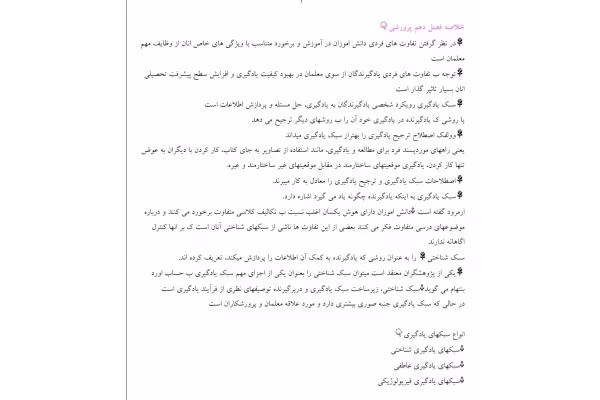 خلاصه فصل دهم پرورشی
در نظر گرفتن تفاوت های فردی دانش اموزان در آموزش و برخورد متناسب با ویژگی های خاص انان از وظایف مهم
معلمان است
توجه ب تفاوت های فردی یادگیرندگان از سوی معلمان در بهبود کیفیت یادگیری و افزایش سطح پیشرفت تحصیلی
انان بسیار تاثیر گذار است
سبک یادگیری رویکرد شخصی یادگیرندگان به یادگیری، حل مسئله و پردازش اطلاعات است
یا روشی ک یادگیرنده در یادگیری خود آن را ب روشهای دیگر ترجیح می دهد
وولفک اصطلاح ترجیح یادگیری را بهتراز سبک یادگیری میداند
یعنی راههای موردپسند فرد برای مطالعه و یادگیری، مانند استفاده از تصاویر به جای کتاب، کار کردن با دیگران به عوض
تنها کار کردن، یادگیری موقعیتهای ساختارمند در مقابل موقعیتهای غیر ساختارمند و غیره.
اصطلاحات سبک یادگیری و ترجیح یادگیری را معادل به کار میبرند.
سبک یادگیری به اینکه یادگیرنده چگونه یاد می گیرد اشاره دارد.
ارمرود گفته است دانش اموزان دارای هوش یکسان اغلب نسبت ب تکالیف کلاسی متفاوت برخورد می کنند و درباره
موضوعهای درسی متفاوت فکر می کنند بعضی از این تفاوت ها ناشی از سبکهای شناختی آنان است ک بر انها کنترل
اگاهانه ندارند
سبک شناختی را به عنوان روشی که یادگیرنده به کمک آن اطلاعات را پردازش میکند، تعریف کرده اند.
یکی از پژوهشگران معتقد است میتوان سبک شناختی را بعنوان یکی از اجزای مهم سبک یادگیری ب حساب اورد
بنتهام می گوید سبک شناختی، زیرساخت سبک یادگیری و دربرگیرنده توصیفهای نظری از فرآیند یادگیری است
در حالی که سبک یادگیری جنبه صوری بیشتری دارد و مورد علاقه معلمان و پرورشکاران است
انواع سبکهای یادگیری
سبکهای یادگیری شناختی
سبکهای یادگیری عاطفی
سبکهای یادگیری فیزیولوژیکی